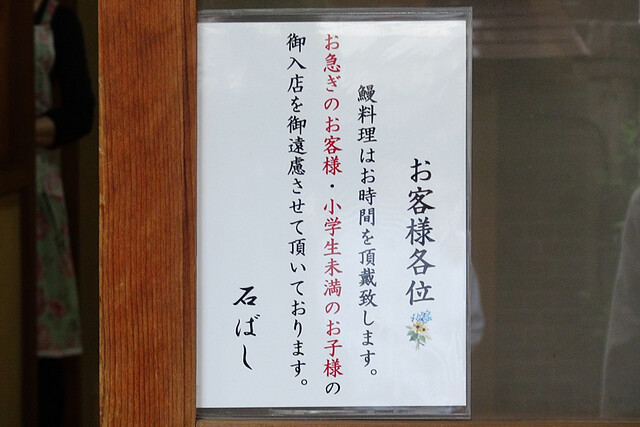 お客様各位
鰻料理はお時間を頂戴致します。
お急ぎのお客様・小学生未満のお子様の
御入店を御遠慮させて頂いております。
石ばし